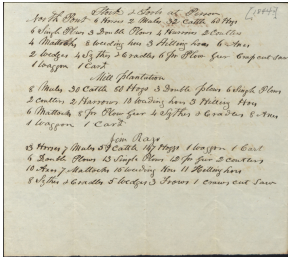 [1844?]
Stock & Tools at Person
North Point 6 Horses 2 Mules 32 Cattle 60 Hogs
6 Singl Plows 3 Double Plows 4 Harrows 2 Coulters
4 Mattocks 8 weeding hoes 3 Hilling hoes 6 Axes
2 wedges 4 Sythes & Cradles 6 pr Plow Gear Cross cut Saw
1 Waggon 1 Cart
Mill Plantation
8 Mules 30 Cattle 60 Hogs 3 Double plows 6 Singl Plows
2 Coulters 2 Harrows 10 weeding hoes 3 Hilling Hoes
6 Mattocks 8 pr Plow Gear 4 Sythes & Cradles 8 Axes
1 Waggon 1 Cart
Jim Rago
13 Horses 7 Mules 59 Cattle 147 Hogs 1 waggon 1 Cart
6 Double Plows 13 Single Plows 12 pr Gear 2 Coulters
10 Axes 7 Mattocks 15 weeding Hoes 11 Hilling hoes
8 Sythes & Cradles 5 Wedges 3 Frows 1 cross cut Saw